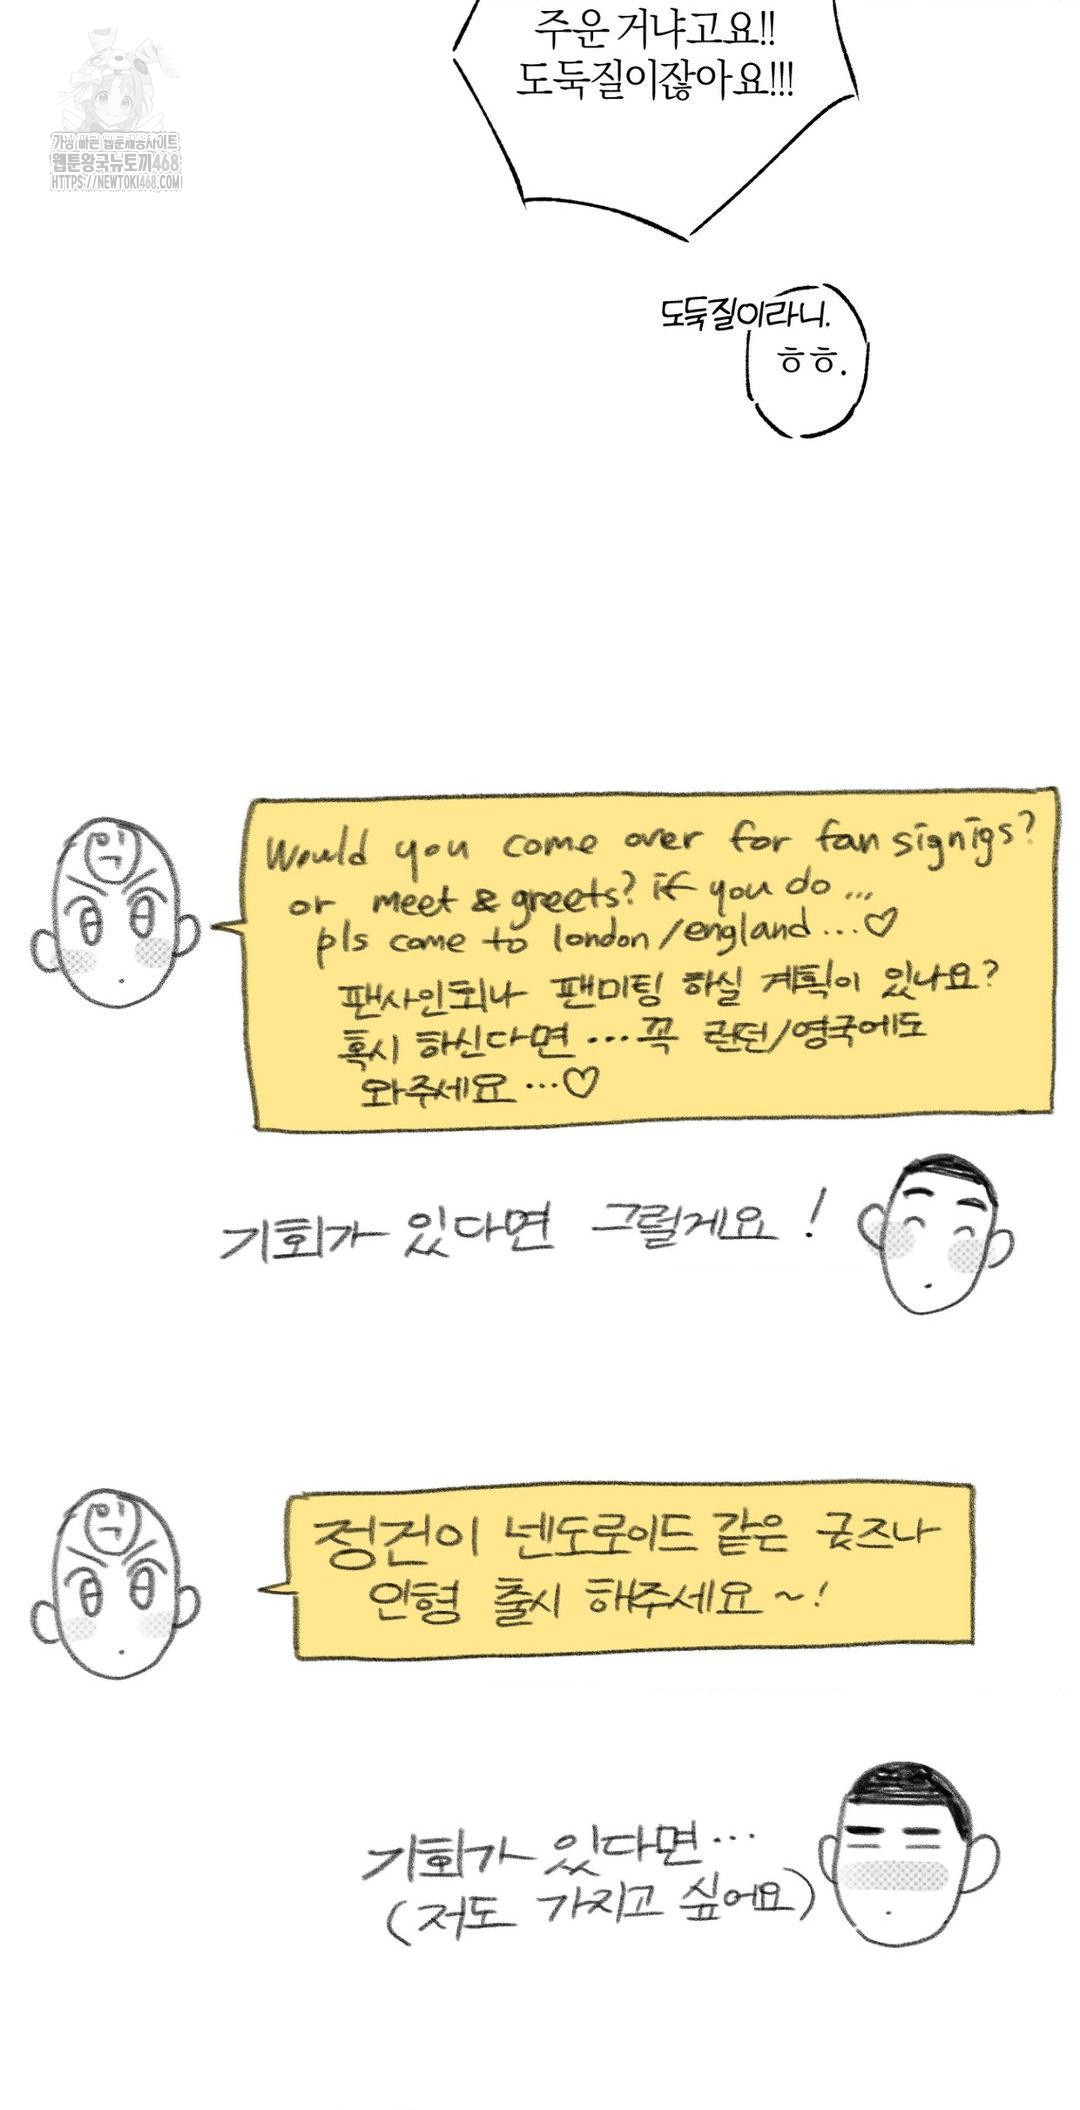 주운 거냐고요!!
도둑질이잖아요!!!
가장 빠른 웹툰제공사이트
웹툰왕국뉴토끼468
HTTPS://NEWTOKI468.COM
도둑질이라니.
ㅎㅎ.
Would you come over for fan signigs?
or meet & greets? if you do...
pls come to london/england...♡
팬사인회나 팬미팅 하실 계획이 있나요?
혹시 하신다면...꼭 런던/영국에도
와주세요...♡
기회가 있다면 그럴게요!
정건이 넨도로이드 같은 굿즈나
인형 출시 해주세요~!
기회가 있다면...
(저도 가지고 싶어요)